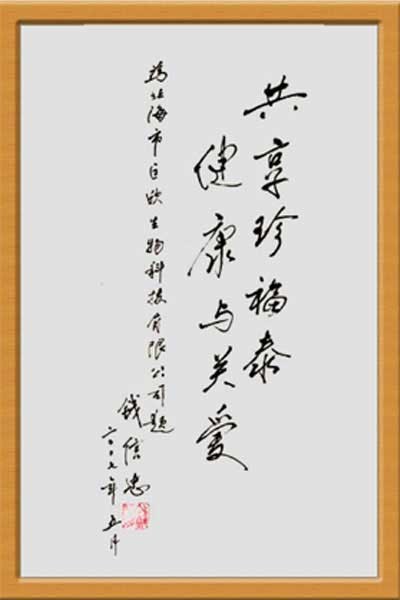 共享珍福泰
健康与关爱
为北海市巨欧生物科技有限公司题
钱信忠
二〇〇七年五月